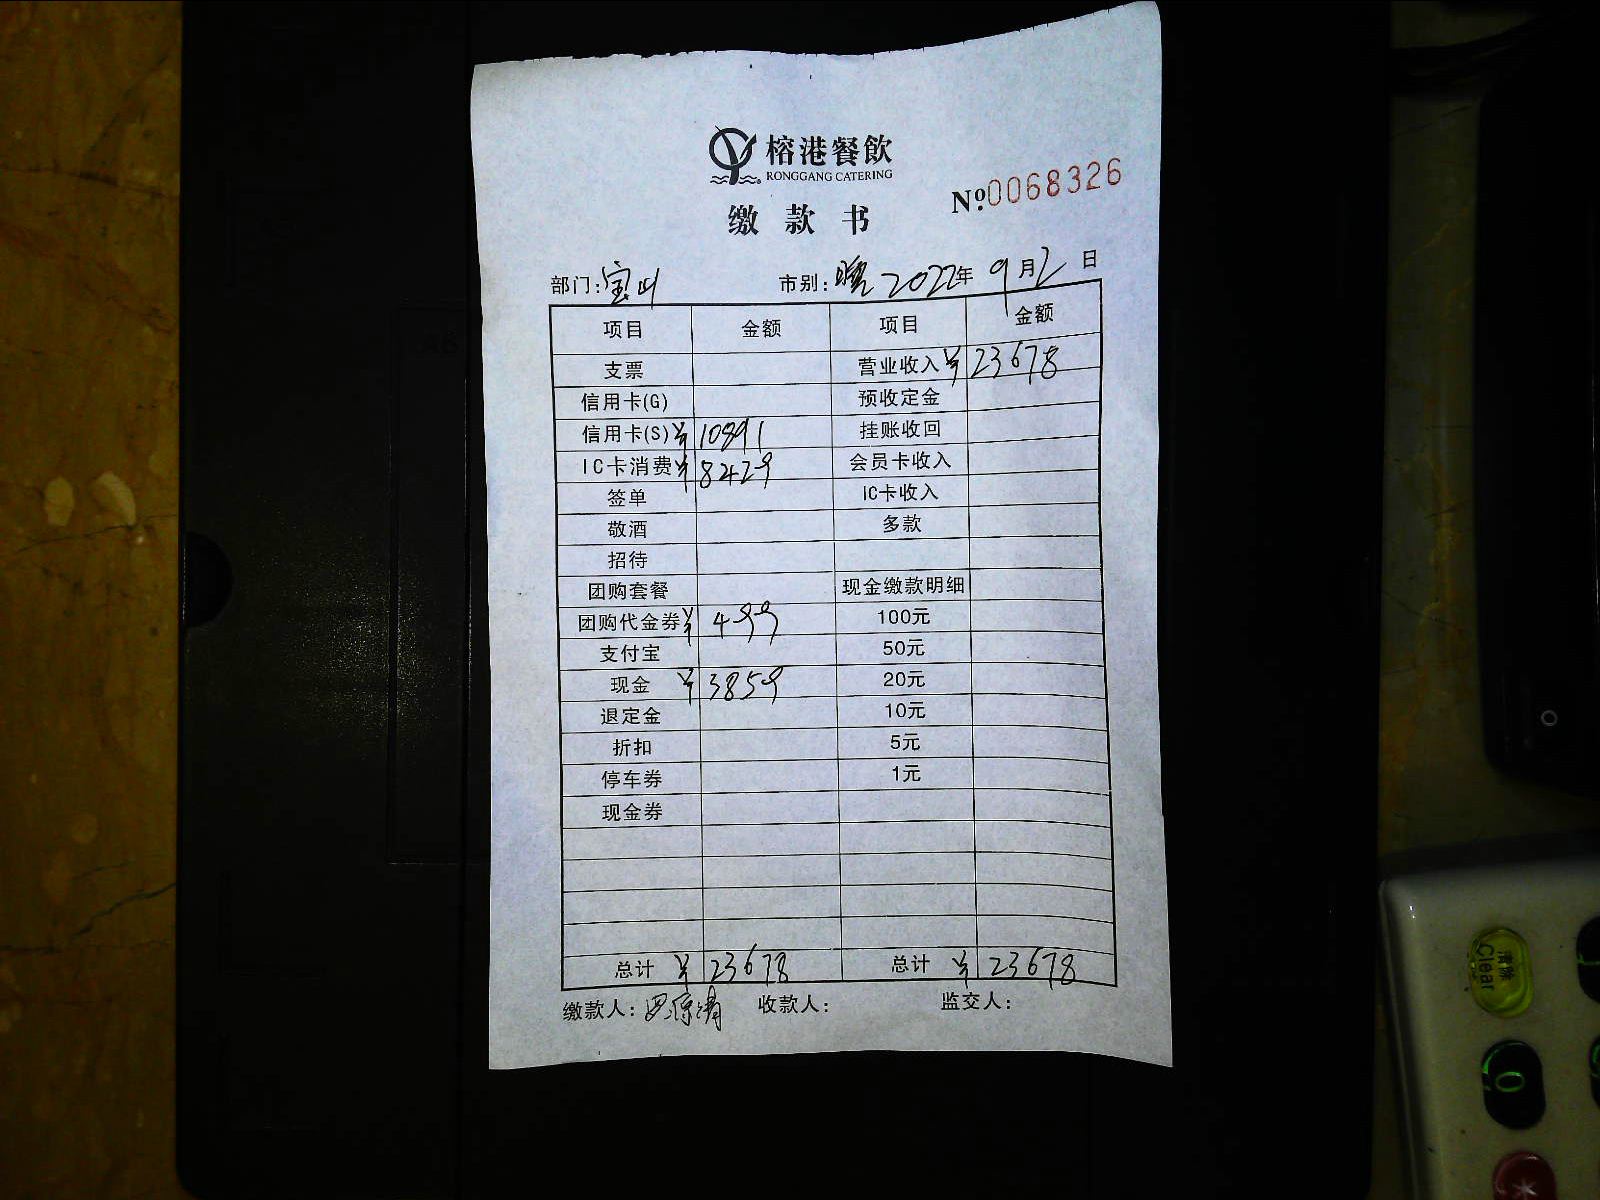 榕港餐飲
RONGGANG CATERING
缴款书
Nº:0068326
部门:宝山 市别:晚 2022年9月2日
项目 金额 项目 金额
支票 营业收入 ¥23678
信用卡(G) 预收定金
信用卡(S) ¥10891 挂账收回
IC卡消费 ¥8429 会员卡收入
签单 IC卡收入
敬酒 多款
招待
团购套餐 现金缴款明细
团购代金券 ¥499 100元
支付宝 50元
现金 ¥3859 20元
退定金 10元
折扣 5元
停车券 1元
现金券
总计 ¥23678 总计 ¥23678
缴款人: 收款人: 监交人:
清除
Clear
0